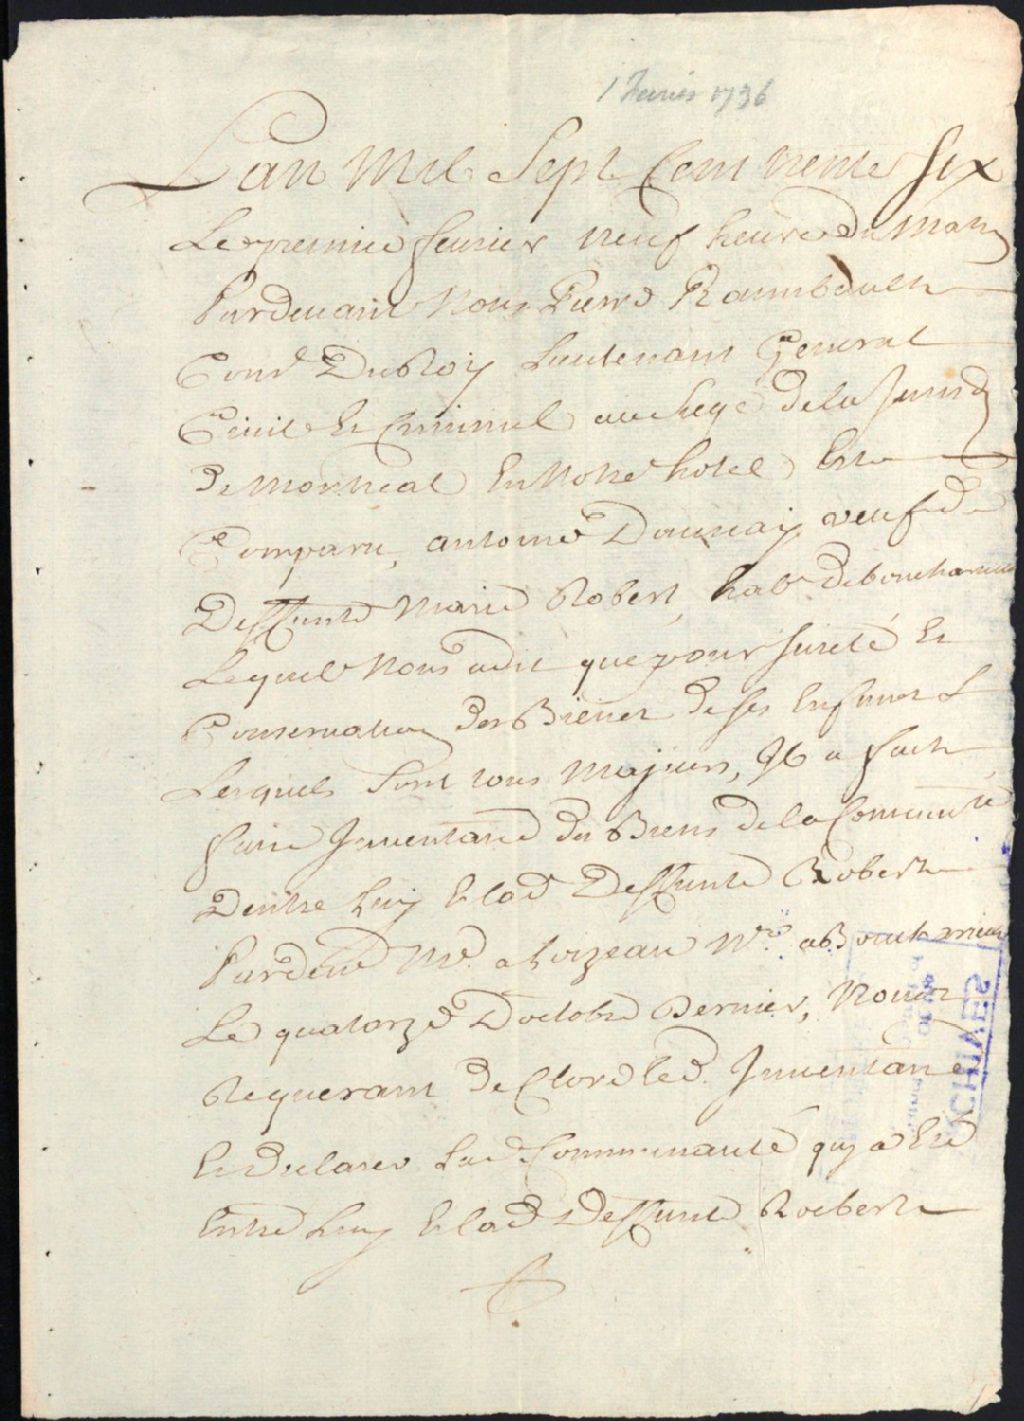 1 Fevrier 1736
Lan Mil Sept Cent trente six
Le premier fevrier neuf heure du matin
Pardevant Nous Pierre Raimbault
Cons.r Du Roy Lieutenant General
Civil Et Criminel au siege de la Jurisd
de Montreal En Notre hotel Est
Comparu, antoine Daunay veuf de
Deffunte Marie Robert, hab.t deboucherville
Lequel Nous a dit que pour sureté Et
Conservation des Biens de ses Enfans
Lesquels sont tous Majeurs, Il a fait
faire Inventaire des Biens de la Communté
Dentre Luy Et lad Deffunte Robert
Pardev.t M.e Loizeau N.re a Boucherville
Le quatorze Doctobre Dernier, Nous
Requerant de Clore led. Inventaire
Et declarer Lad Communauté quy a Eté
Entre Luy Et lad Deffunte Roebert
ARCHIVES